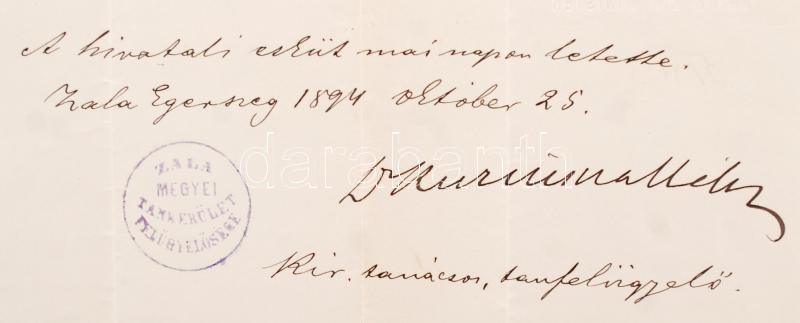 A hivatali esküt mai napon letette.
Zala Egerszeg 1894 október 25.
darabanth
Dr Ruzsicska
ZALA
MEGYEI
TANKERÜLET
FELÜGYELŐSÉGE
Kir. tanácsos, tanfelügyelő.